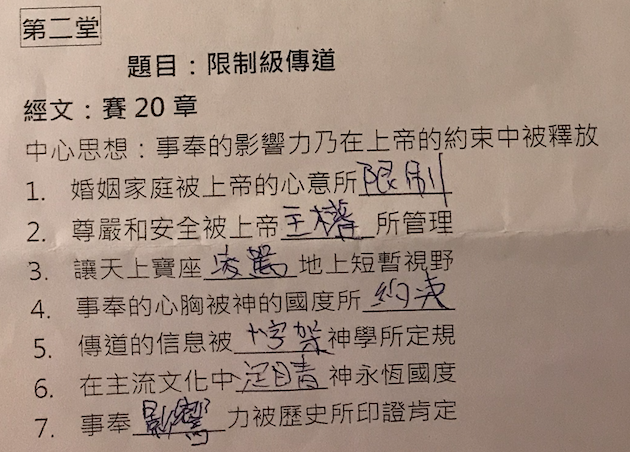 第二堂
題目：限制級傳道
經文：賽 20 章
中心思想：事奉的影響力乃在上帝的約束中被釋放
1. 婚姻家庭被上帝的心意所限制
2. 尊嚴和安全被上帝主權所管理
3. 讓天上寶座凌駕地上短暫視野
4. 事奉的心胸被神的國度所約束
5. 傳道的信息被十字架神學所定規
6. 在主流文化中定睛神永恆國度
7. 事奉影響力被歷史所印證肯定